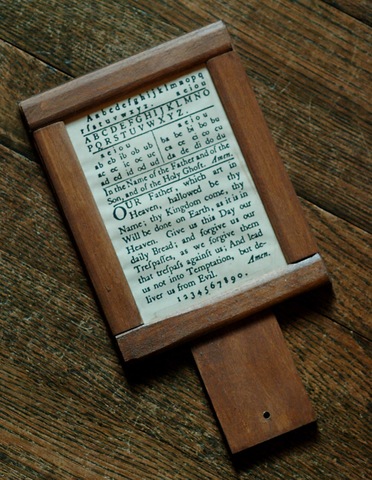 Aabcdefghijklmnopq
rſstuvwxyz. aeiou
ABCDEFGHIJKLMNO
PQRSTUVWXYZ.
a e i o u a e i o u
ab eb ib ob ub ba be bi bo bu
ac ec ic oc uc ca ce ci co cu
ad ed id od ud da de di do du
In the Name of the Father and of the
Son, and of the Holy Ghoſt. Amen.
OUR Father, which art in
Heaven, hallowed be thy
Name; thy Kingdom come, thy
Will be done on Earth, as it is in
Heaven. Give us this Day our
daily Bread; and forgive us our
Treſpaſſes, as we forgive them
that treſpaſs againſt us: And lead
us not into Temptation, but de-
liver us from Evil. Amen.
1234567890.